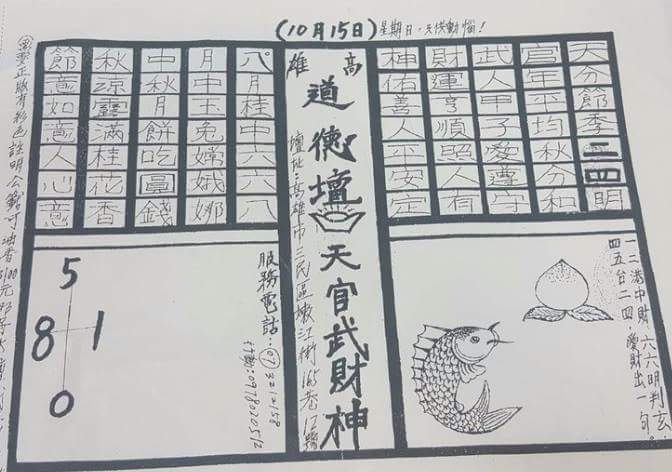 (10月15日)星期日
高雄
道德壇 天官武財神
壇址:高雄市三民區嫩江街165巷12號
天分節季二四明
官年平均秋分和
武人甲子愛遵守
財運亨順照人有
神佑善人平安定
八月桂中六六八
月中玉兔嫦娥娜
中秋月餅吃圓錢
秋涼露滿桂花香
節意如意人心意
一二港中財 六六明判玄
四五台二四,慶財出一句。
服務電話:(07)3212158
5
8 1
0
正版有彩色註明